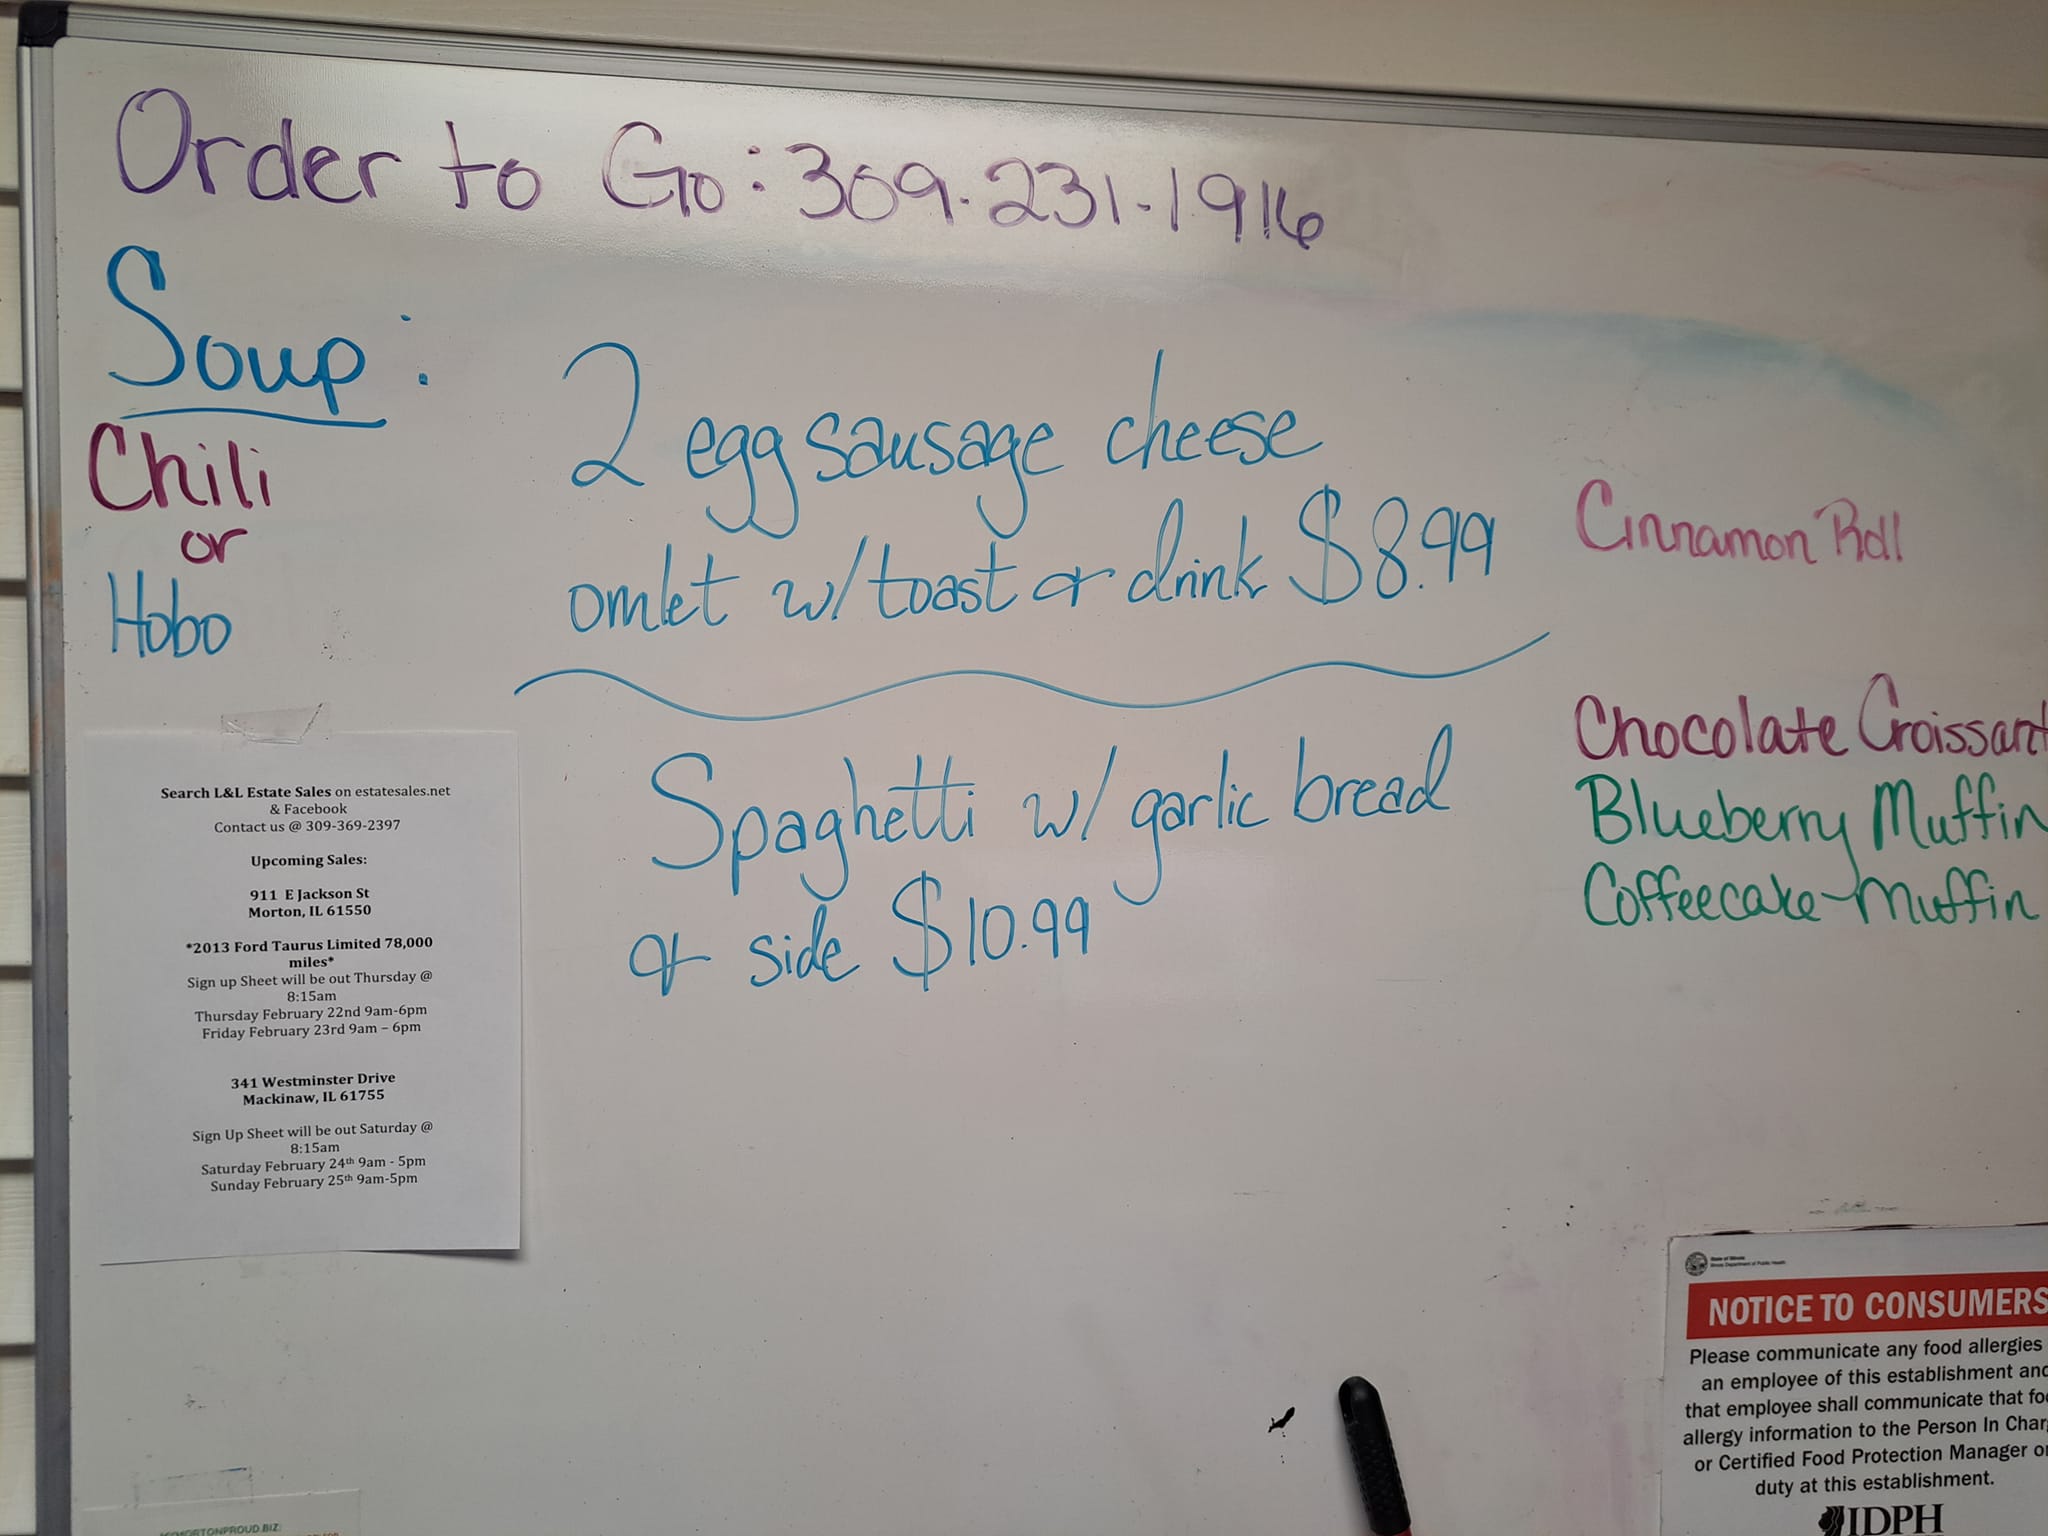 Order to Go: 309.231.1916
Soup:
Chili
or
Hobo
2 egg sausage cheese
omlet w/ toast & drink $8.99
Spaghetti w/ garlic bread
& side $10.99
Cinnamon Roll
Chocolate Croissant
Blueberry Muffin
Coffeecake-Muffin
Search L&L Estate Sales on estatesales.net
& Facebook
Contact us @ 309-369-2397
Upcoming Sales:
911 E Jackson St
Morton, IL 61550
*2013 Ford Taurus Limited 78,000
miles*
Sign up Sheet will be out Thursday @
8:15am
Thursday February 22nd 9am-6pm
Friday February 23rd 9am – 6pm
341 Westminster Drive
Mackinaw, IL 61755
Sign Up Sheet will be out Saturday @
8:15am
Saturday February 24th 9am - 5pm
Sunday February 25th 9am-5pm
State of Illinois
Illinois Department of Public Health
NOTICE TO CONSUMERS
Please communicate any food allergies
an employee of this establishment and
that employee shall communicate that foo
allergy information to the Person In Char
or Certified Food Protection Manager o
duty at this establishment.
IDPH
MORTONPROUD.BIZ